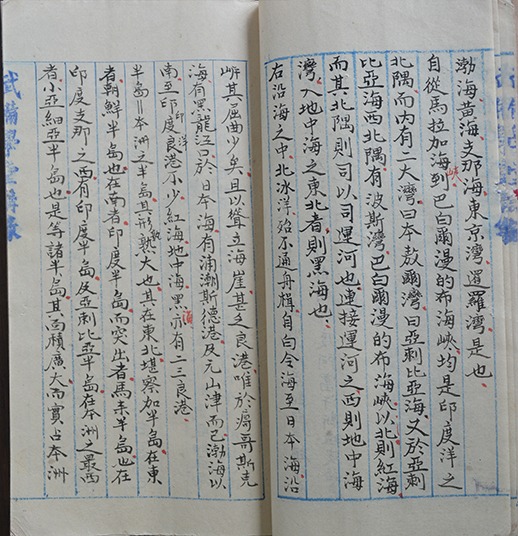 渤海黄海支那海東京灣暹羅灣是也
自從馬拉加海峽到巴白爾漫的布海峽均是印度洋之
北隅而内有二大灣曰本敖爾灣曰亞剌比亞海又於亞剌
比亞海西北隅有波斯灣巴白爾漫的布海峽以北則紅海
而其北隅則可以司運河也連接運河之西則地中海
灣入地中海之東北者則黑海也
右沿海之中北冰洋殆不通舟楫自白令海至日本海沿
岍其屈曲少矣且以聳立海崖甚乏良港唯於痾哥斯克
海有黑龍江口於日本海有浦潮斯德港及元山津而已渤海以
南至印度洋良港不少紅海地中海黑海亦有二三良港
半島 本洲之半島其形勢大也其在東北堪察加半島在東
者朝鮮半島也在南者印度半島而突出者馬来半島也在
印度支那之西有印度半島及亞剌比亞半島在本洲之最西
者小亞細亞半島也是等諸半島其面積廣大而實占本洲
武備學堂